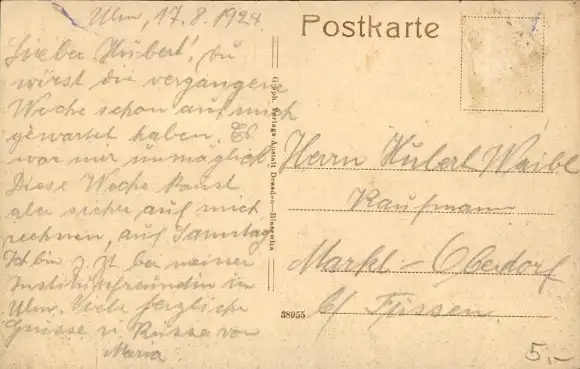 Ulm, 17.8.1924
Lieber Hubert! du
wirst die vergangene
Woche schon auf mich
gewartet haben. Es
war mir unmöglich
Diese Woche kanst
aber sicher auf mich
rechnen, auf Samstag
Ich bin z. Zt. bei meiner
Institutsfreundin in
Ulm. Viele herzliche
Grüsse u. Küsse von
Maria
Postkarte
Graph. Verlags-Anstalt Dresden-Blasewitz
38955
Herrn Hubert Waibl
Kaufmann
Markt-Oberdorf
b/ Füssen
5.-